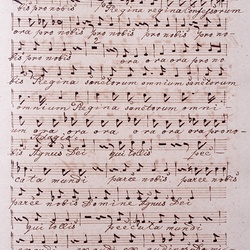 bis pro nobis Regina regina Confessorum
ora pro nobis pro nobis pro no
bis pro nobis ora ora pro nobis pro no
bis Regina sanctorum omnium sanctorum
omnium Regina sanctorum omni
um ora ora ora ora ora pro no
bis Agnus Dei qui tollis pec
cata mundi parce nobis parce nobis
parce nobis Domine Agnus Dei
qui tollis peccata mundi